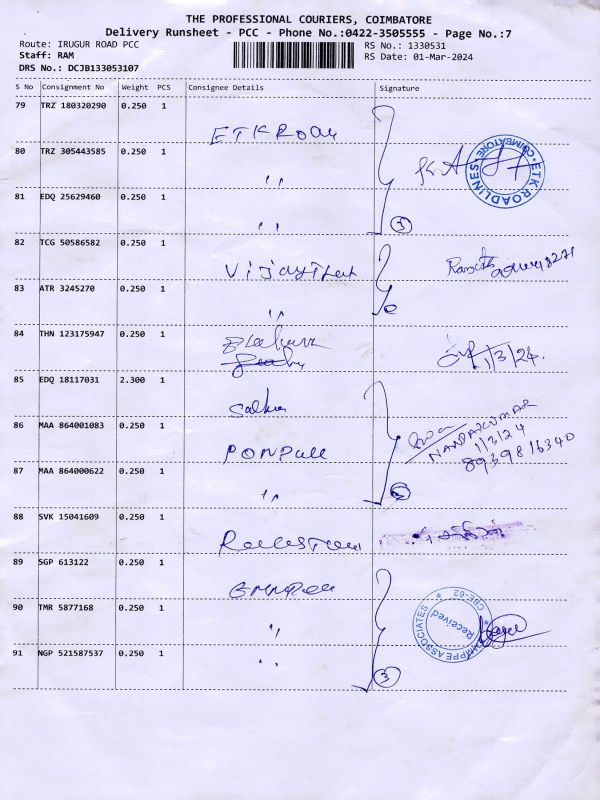 THE PROFESSIONAL COURIERS, COIMBATORE
Delivery Runsheet - PCC - Phone No.:0422-3505555 - Page No.:7
Route: IRUGUR ROAD PCC RS No.: 1330531
Staff: RAM RS Date: 01-Mar-2024
DRS No.: DCJB133053107
S No Consignment No Weight PCS Consignee Details Signature
79 TRZ 180320290 0.250 1
ETK Road
80 TRZ 305443585 0.250 1
,,
ETK ROADLINES * COIMBATORE *
81 EDQ 25629460 0.250 1
,, 3
82 TCG 50586582 0.250 1
83 ATR 3245270 0.250 1
,,
84 THN 123175947 0.250 1
1/3/24.
85 EDQ 18117031 2.300 1
86 MAA 864001083 0.250 1
NANDAKUMAR
1/3/24
8939816340
87 MAA 864000622 0.250 1
,,
88 SVK 15041609 0.250 1
89 SGP 613122 0.250 1
90 TMR 5877168 0.250 1
,,
ASSOCIATES * CBE-62 *
Received
91 NGP 521587537 0.250 1
,, 3